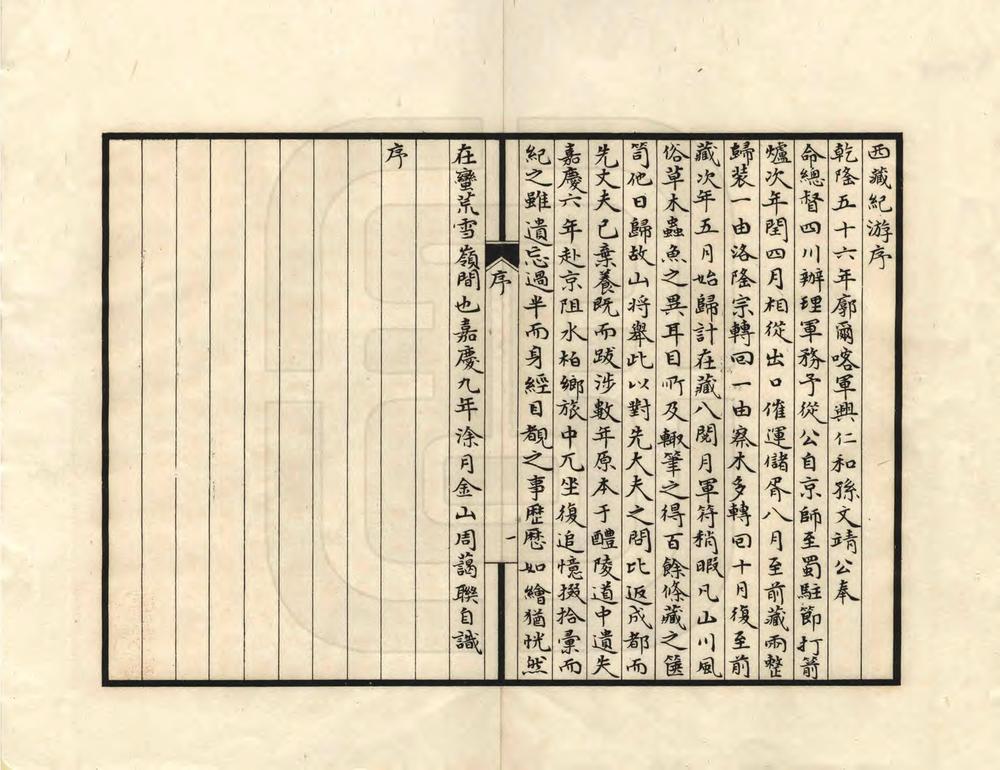 西藏紀游序
乾隆五十六年廓爾喀軍興仁和孫文靖公奉
命總督四川辦理軍務予從公自京師至蜀駐節打箭
爐次年閏四月相從出口催運儲胥八月至前藏兩整
歸裝一由洛隆宗轉回一由察木多轉回十月復至前
藏次年五月始歸計在藏八閱月軍符稍暇凡山川風
俗草木蟲魚之異耳目所及輒筆之得百餘條藏之篋
笥他日歸故山將舉此以對先大夫之問比返成都而
先丈夫已棄養既而跋涉數年原本于醴陵道中遺失
嘉慶六年赴京阻水柏鄉旅中兀坐復追憶掇拾彙而
紀之雖遺忘過半而身經目覩之事歷歷如繪猶恍然
序
一
在蠻荒雪嶺間也嘉慶九年涂月金山周藹聯自識
序